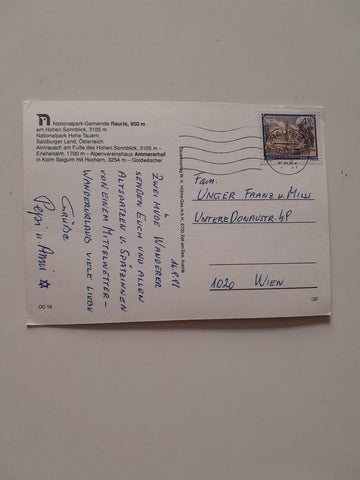 Nationalpark-Gemeinde Rauris, 950 m
am Hohen Sonnblick, 3105 m
Nationalpark Hohe Tauern,
Salzburger Land, Österreich
Almrausch am Fuße des Hohen Sonnblick, 3105 m –
Erlehenalm, 1700 m – Alpenvereinshaus Ammererhof
in Kolm Saigurn mit Hocharn, 3254 m – Goldwäscher
16.9.91
ZWEI MÜDE WANDERER
SENDEN EUCH UND ALLEN
ALTSPATZEN U. SPATZINNEN
VON EINEM MITTELWETTER-
WANDERURLAUB VIELE LIEBE
Grüße
Pepi u. Anni
OC 18
Fam.
UNGER FRANZ u. MILLI
UNTERE DONAUSTR. 49
1020 WIEN